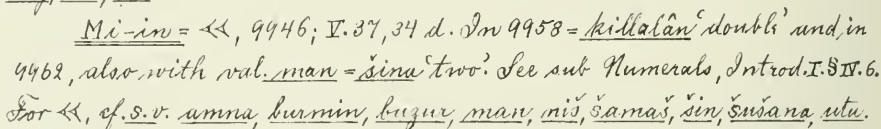 Mi-in = 𒎙, 9946; V. 37, 34 d. In 9958 = killalân 'double' and in
9962, also with val. man = šina 'two'. See sub Numerals, Introd. I. § IV. 6.
For 𒎙, cf. s. v. amna, burmin, buzur, man, niš, šamaš, šin, šušana, utu.